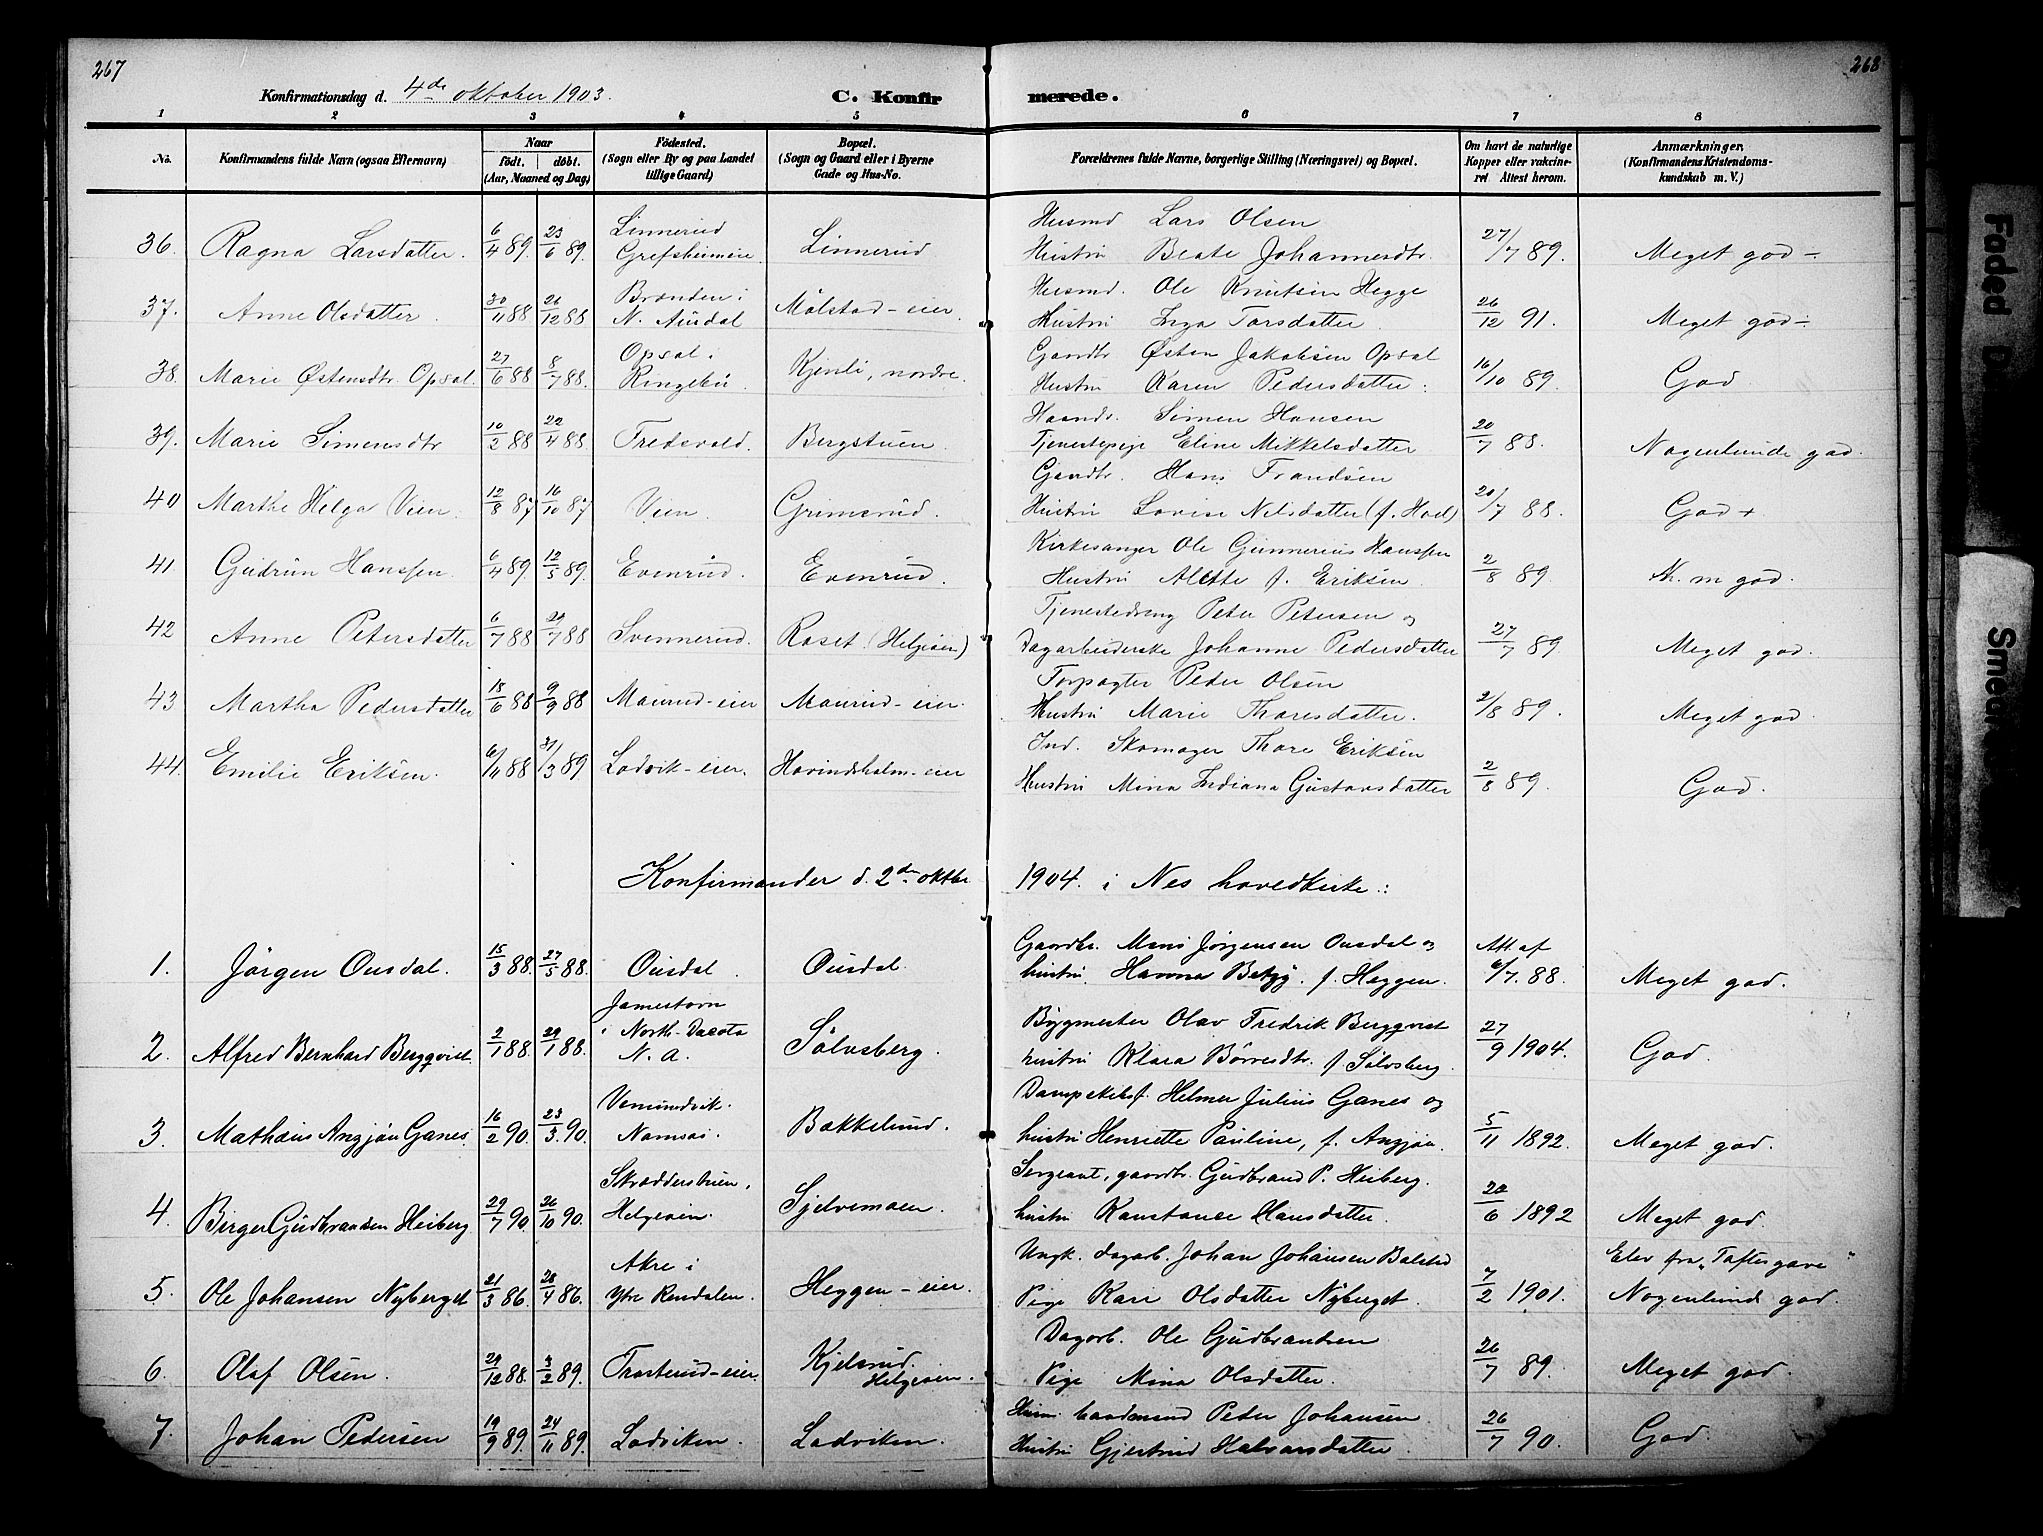 267
268
Konfirmationsdag d. 4de oktober 1903.
C. Konfirmerede.
1 2 3 4 5 6 7 8
No. Konfirmandens fulde Navn (ogsaa Efternavn) Naar født. døbt. (Aar, Maaned og Dag) Fødested. (Sogn eller By og paa Landet tillige Gaard) Bopæl. (Sogn og Gaard eller i Byerne Gade og Hus-No. Forældrenes fulde Navne, borgerlige Stilling (Næringsvei) og Bopæl. Om havt de naturlige Kopper eller vakcineret Attest herom. Anmærkninger. (Konfirmandens Kristendomskundskab m. V.)
Linnerud Husmd Lars Olsen
36. Ragna Larsdatter. 6/4 89. 23/6 89. Grefsheimeie Linnerud Hustru Beate Johannesdtr. 27/7 89. Meget god ÷
Brenden i Husmd. Ole Knutsen Hegge
37. Anne Olsdatter. 30/11 88 26/12 88 N. Aurdal Målstad-eier. Hustru Inga Torsdatter. 26/12 91. Meget god ÷
Opsal i Gaardbr Østen Jakobsen Opsal
38. Marie Østensdtr. Opsal. 27/6 88 8/7 88. Ringebu. Kjenli, nordre. Hustru Karen Pedersdatter. 16/10 89. God
Haandv. Simen Hansen
39. Marie Simensdtr 10/2 88 22/4 88. Tredevold. Bergstuen. Tjenestepige Eline Mikkelsdatter 20/7 88. Nogenlunde god.
Gaardbr. Hans Frandsen
40 Marthe Helga Vien. 12/8 87 16/10 87 Vien. Grimsrud. Hustru Lovise Nilsdatter (f. Hoel) 20/7 88. God +
Kirkesanger Ole Gunnerius Hanssen
41 Gudrun Hanssen. 6/4 89 12/5 89. Evenrud. Evenrud. Hustru Alette f. Eriksen. 2/8 89. N. m god.
Tjenestedreng Peter Petersen og
42 Anne Petersdatter 6/7 88 29/7 88 Svennerud. Roset (Helgøen) Dagarbeiderske Johanne Pedersdatter 27/7 89 Meget god.
Forpagter Peder Olsen
43 Martha Pedersdatter 18/6 88 9/9 88 Maurud-eier Maurud-eier. Hustru Marie Thoresdatter. 2/8 89. Meget god.
Ind. Skomager Thore Eriksen
44. Emilie Eriksen. 6/11 88 31/3 89 Lodvik-eier. Hovindsholm-eier Hustru Mina Indiana Gustavsdatter 2/8 89. God.
Konfirmander d. 2den oktbr. 1904. i Nes hovedkirke:
Gaardbr. Mons Jørgensen Ousdal og Att. af
1. Jørgen Ousdal. 15/3 88. 27/5 88. Ousdal. Ousdal. hustru. Hanna Betzy. f. Heggen. 6/7. 88. Meget god.
Jamestown Bygmester Olav Fredrik Bergqvist
i North-Dacota
2. Alfred Bernhard Bergqvist. 2/1 88. 29/1 88. N. A. Sølvsberg. hustru Klara Børresdtr. f. Sølvsberg. 27/9 1904. God.
Vemundvik. Dampskibsf. Helmer Julius Ganes og
3. Mathæus Anzjøn Ganes. 16/2 90. 23/3 90. Namsos. Bakkelund. hustru Henriette Pauline, f. Anzjøn. 5/11 1892. Meget god.
Skrædderstuen, Sergeant, gaardbr. Gudbrand P. Heiberg.
4. Birger Gudbrandsen Heiberg 29/7 90. 26/10 90. Helgeøen. Sjelvemoen. hustru Konstance Hansdatter. 20/6 1892 Meget god.
Akre i Ungk. dagarb. Johan Johansen Bolstad Elev fra "Toftes gave"
5. Ole Johansen Nyberget 21/3 86. 28/4 86. Ytre Rendalen. Heggen-eier. Pige Kari Olsdatter Nyberget. 7/2 1901. Nogenlund god.
Kjelsrud. Dagarb. Ole Gudbrandsen
6 Olaf Olsen. 29/12 88. 3/2 89. Trosterud-eier. Helgeøen. Pige Mina Olsdatter. 26/7 89. Meget god.
Peder Johansen
7. Johan Pedersen 19/9 89. 24/11 89. Lodviken. Lodviken. Hustru Gjertrud Halvorsdatter. 26/7 90. God.
Faded D
Smeared